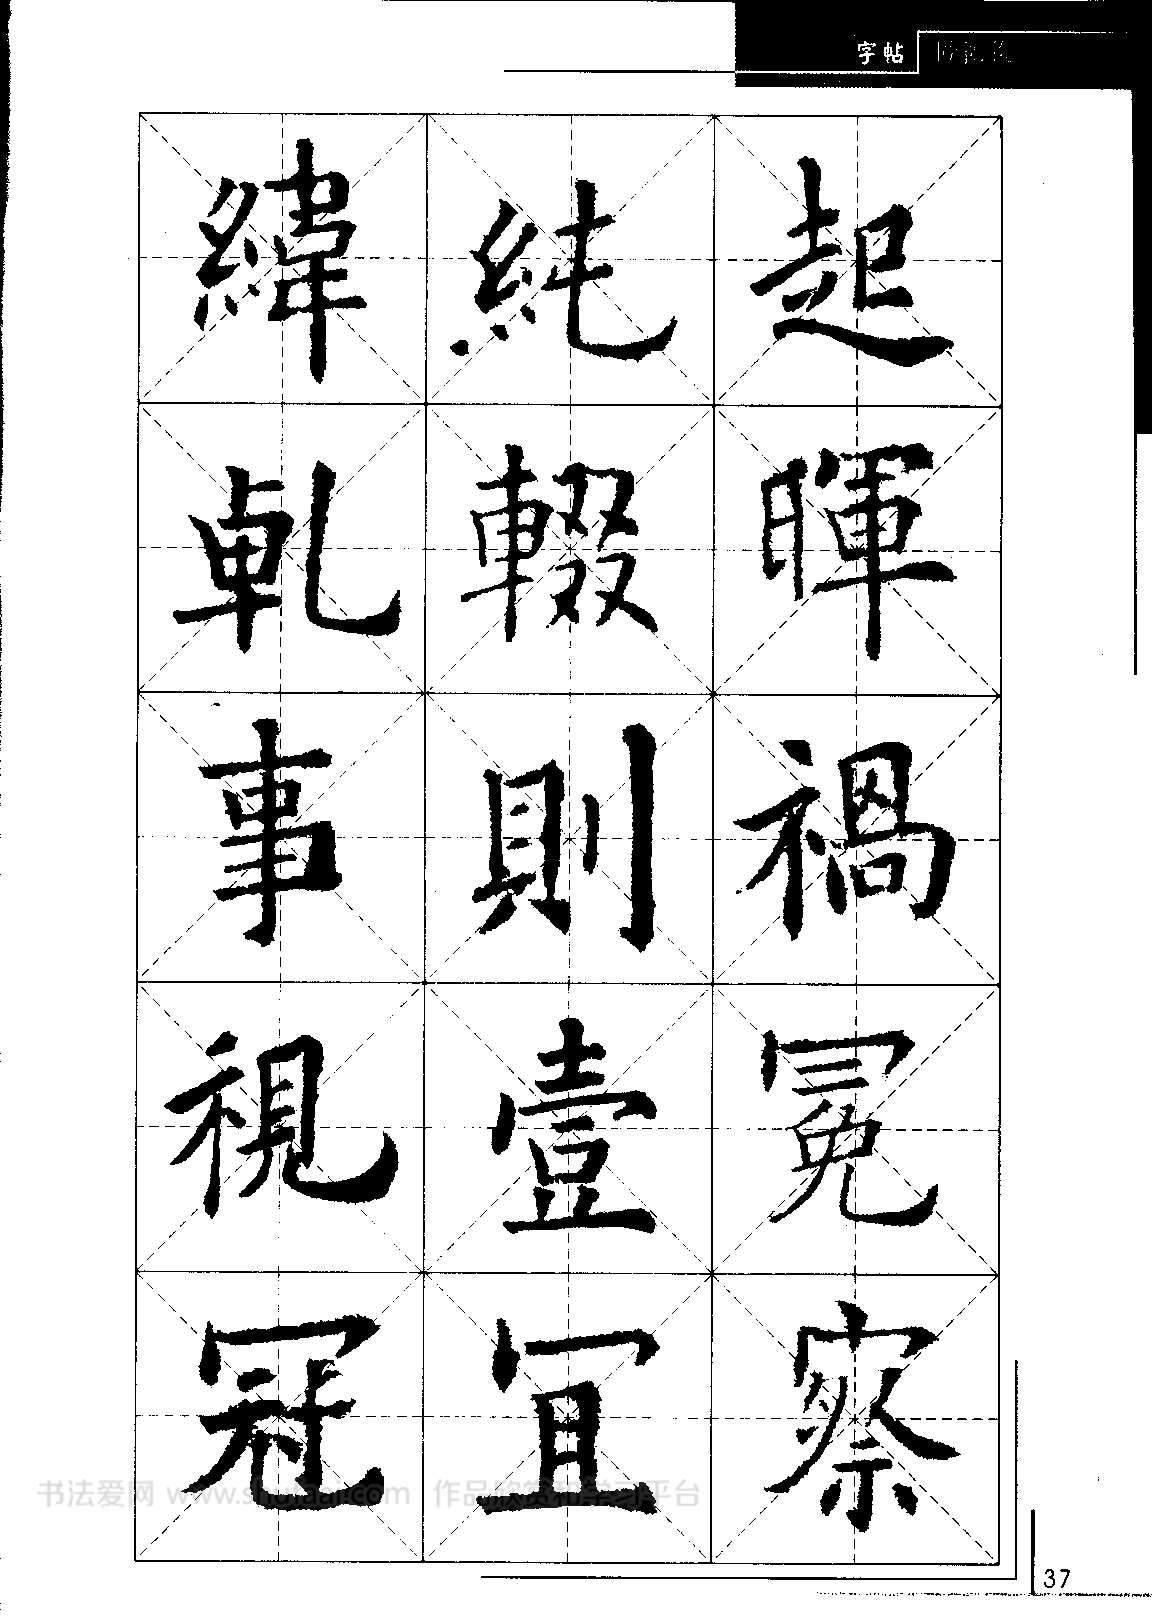 字帖
起暉禍冕察
純輟則壹冝
緯乹事視冠
书法爱网 www.shufaai.com 作品欣赏和学习平台
37